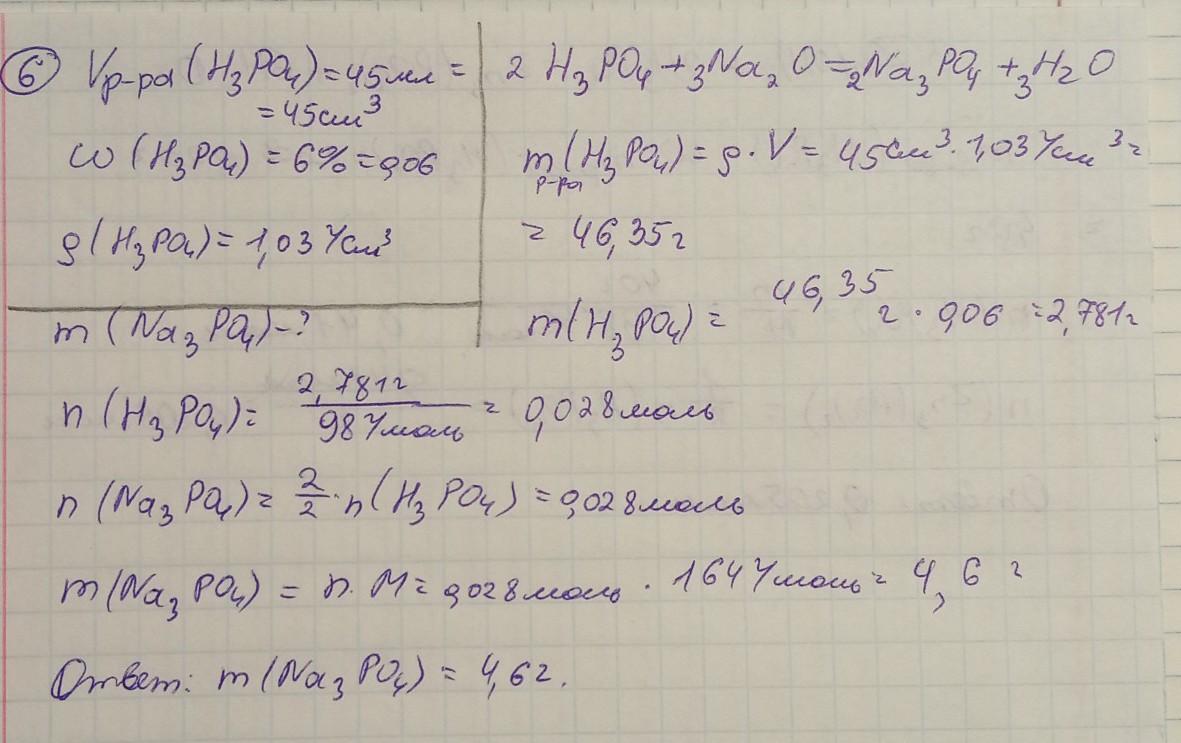 6 Vр-ра (H₃PO₄) = 45мл =
= 45см³
ω (H₃PO₄) = 6% = 0,06
ρ (H₃PO₄) = 1,03 г/см³
m (Na₃PO₄) - ?
2 H₃PO₄ + 3Na₂O = 2Na₃PO₄ + 3H₂O
m р-ра (H₃PO₄) = ρ · V = 45см³ · 1,03 г/см³ =
= 46,35г
m (H₃PO₄) = 46,35 г · 0,06 = 2,781г
n (H₃PO₄) = 2,781г / 98 г/моль = 0,028моль
n (Na₃PO₄) = 2/2 · n (H₃PO₄) = 0,028моль
m (Na₃PO₄) = n · M = 0,028моль · 164 г/моль = 4,6 г
Ответ: m (Na₃PO₄) = 4,6г.